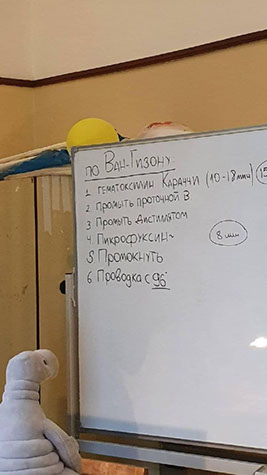 по Ван-Гизону
1 гематоксилин Караччи (10-18мин) 15
2. Промыть проточной В.
3 Промыть Дистилятом
4. Пикрофуксин~ 8 мин
5 Промокнуть
6 Проводка с 96°